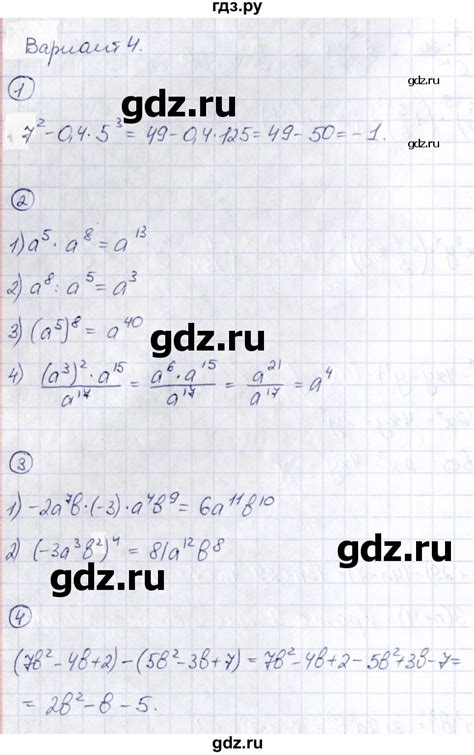 гдз.ру
Вариант 4.
gdz.ru
①
gdz.ru
7² - 0,4 · 5³ = 49 - 0,4 · 125 = 49 - 50 = -1.
gdz.ru
②
1) a⁵ · a⁸ = a¹³
2) a⁸ : a⁵ = a³
3) (a⁵)⁸ = a⁴⁰
gdz.ru
4) (a³)² · a¹⁵ / a¹⁷ = a⁶ · a¹⁵ / a¹⁷ = a²¹ / a¹⁷ = a⁴
gdz.ru
③
1) -2a⁷b · (-3) · a⁴b⁹ = 6a¹¹b¹⁰
gdz.ru
2) (-3a³b²)⁴ = 81a¹²b⁸
gdz.ru
④
gdz.ru
(7b² - 4b + 2) - (5b² - 3b + 7) = 7b² - 4b + 2 - 5b² + 3b - 7 =
= 2b² - b - 5.
gdz.ru
gdz.ru